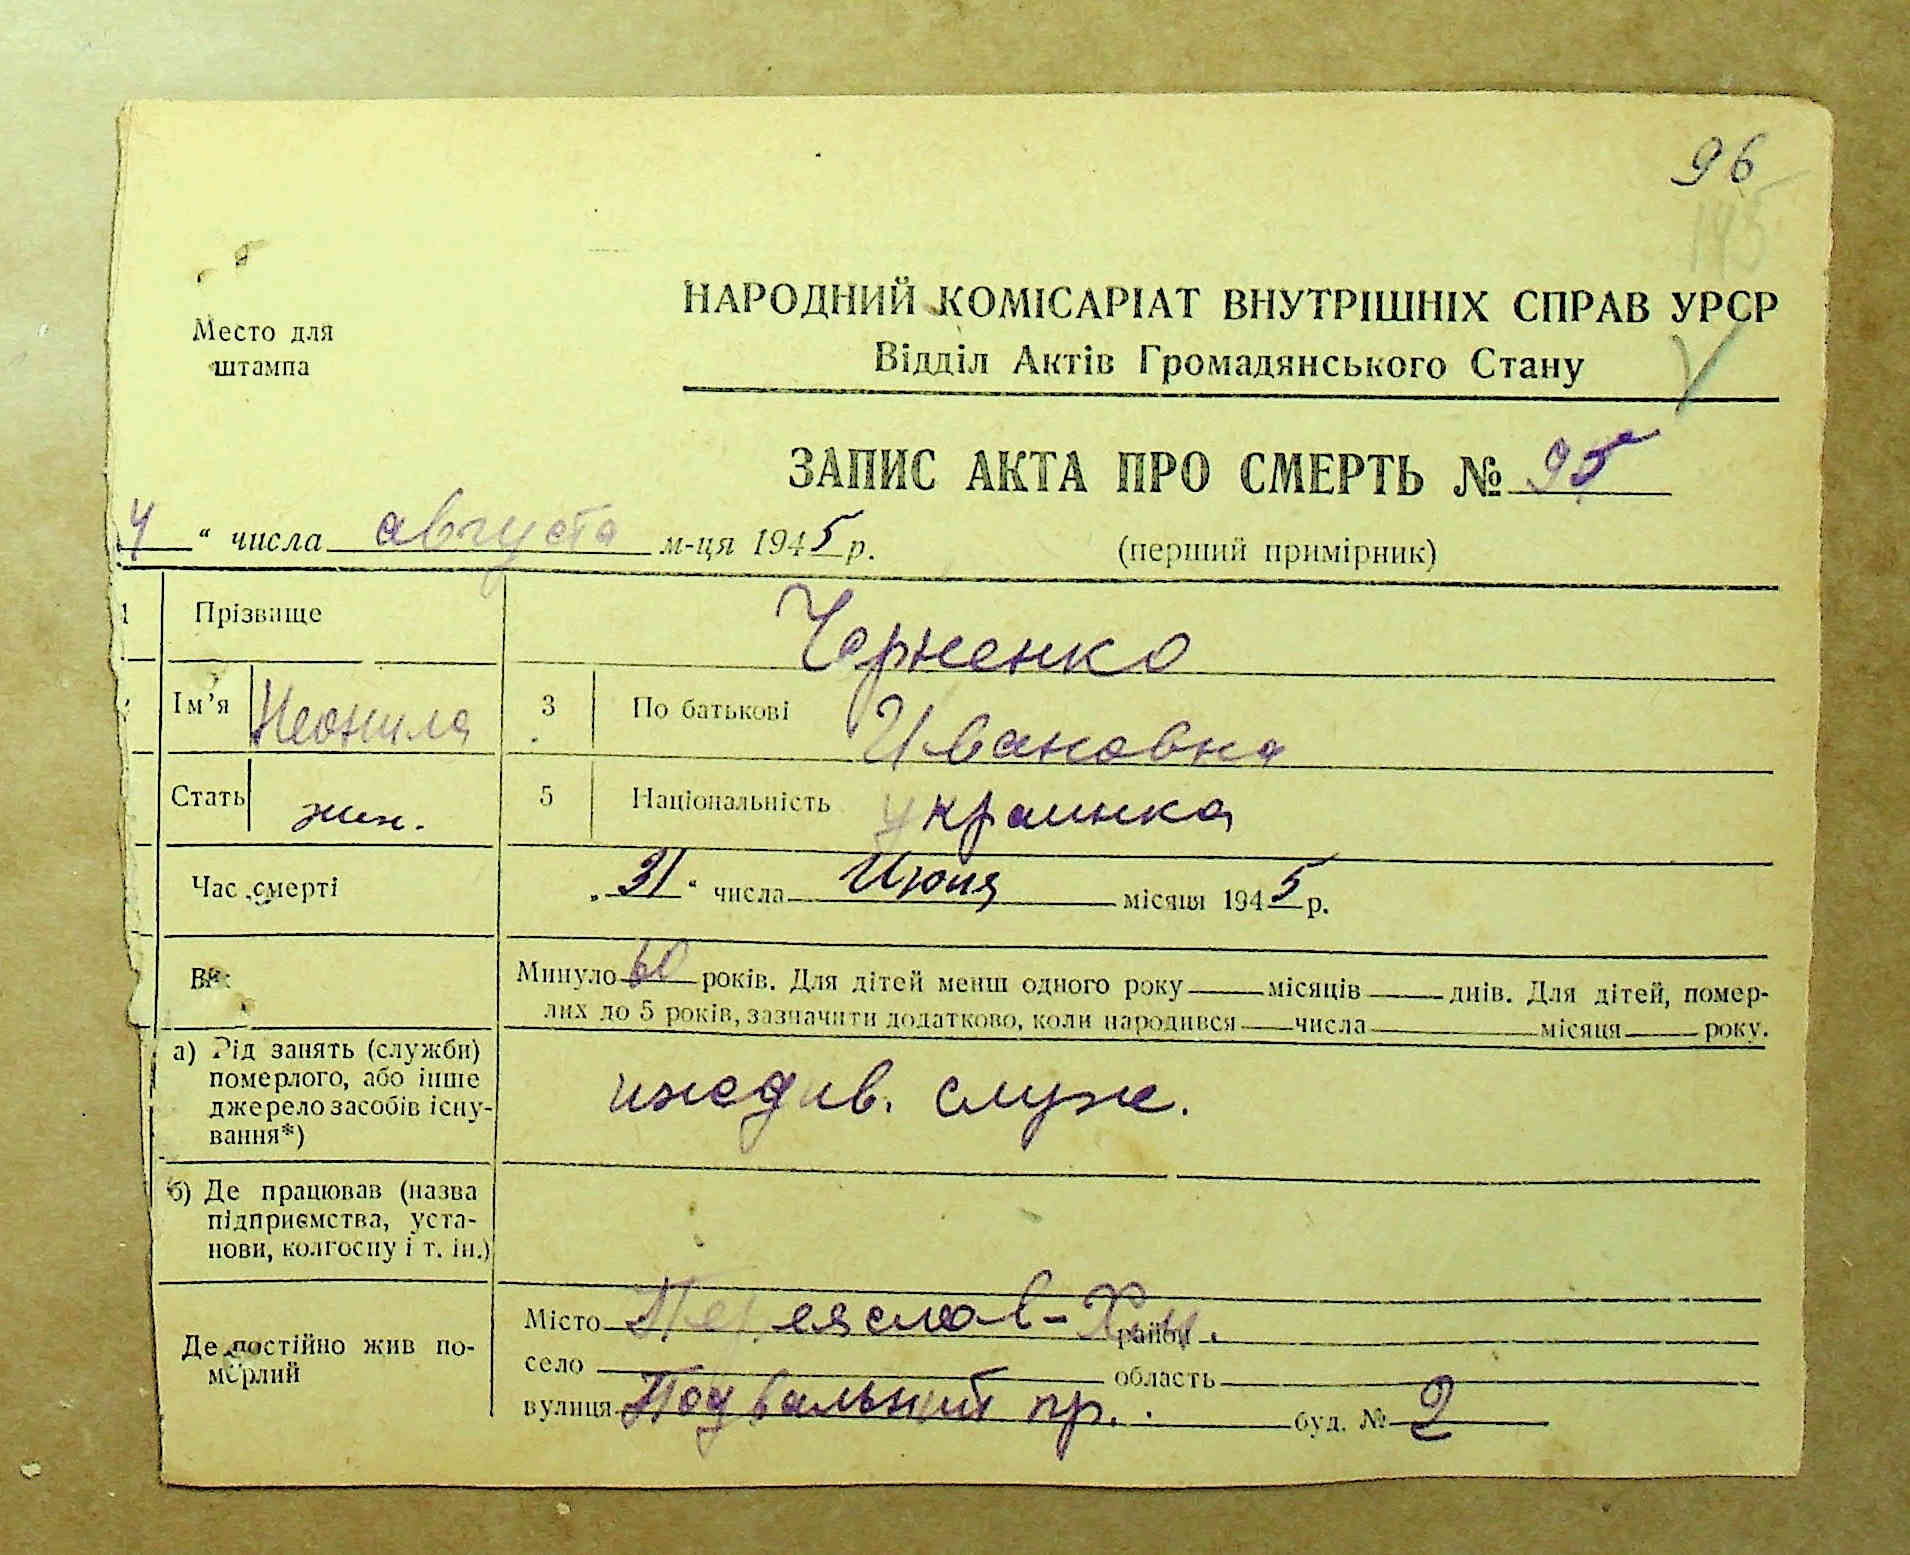 96
145
НАРОДНИЙ КОМІСАРІАТ ВНУТРІШНІХ СПРАВ УРСР
Відділ Актів Громадянського Стану
Место для
штампа
ЗАПИС АКТА ПРО СМЕРТЬ № 95
4 " числа августа м-ця 1945 р. (перший примірник)
1 Прізвище Черненко
Ім'я Неонила 3 По батькові Ивановна
Стать жен. 5 Національність украинка
Час смерті „ 31 " числа Июля місяця 1945 р.
Вік Минуло 60 років. Для дітей менш одного року місяців днів. Для дітей, помер-
лих до 5 років, зазначити додатково, коли народився числа місяця року.
а) Рід занять (служби)
померлого, або інше
джерело засобів існу-
вання*)
иждив. служ.
б) Де працював (назва
підприємства, уста-
нови, колгоспу і т. ін.)
Де постійно жив по-
мерлий
Місто Переяслав-Хм. район
село область
вулиця Подвальний пр. буд. № 2